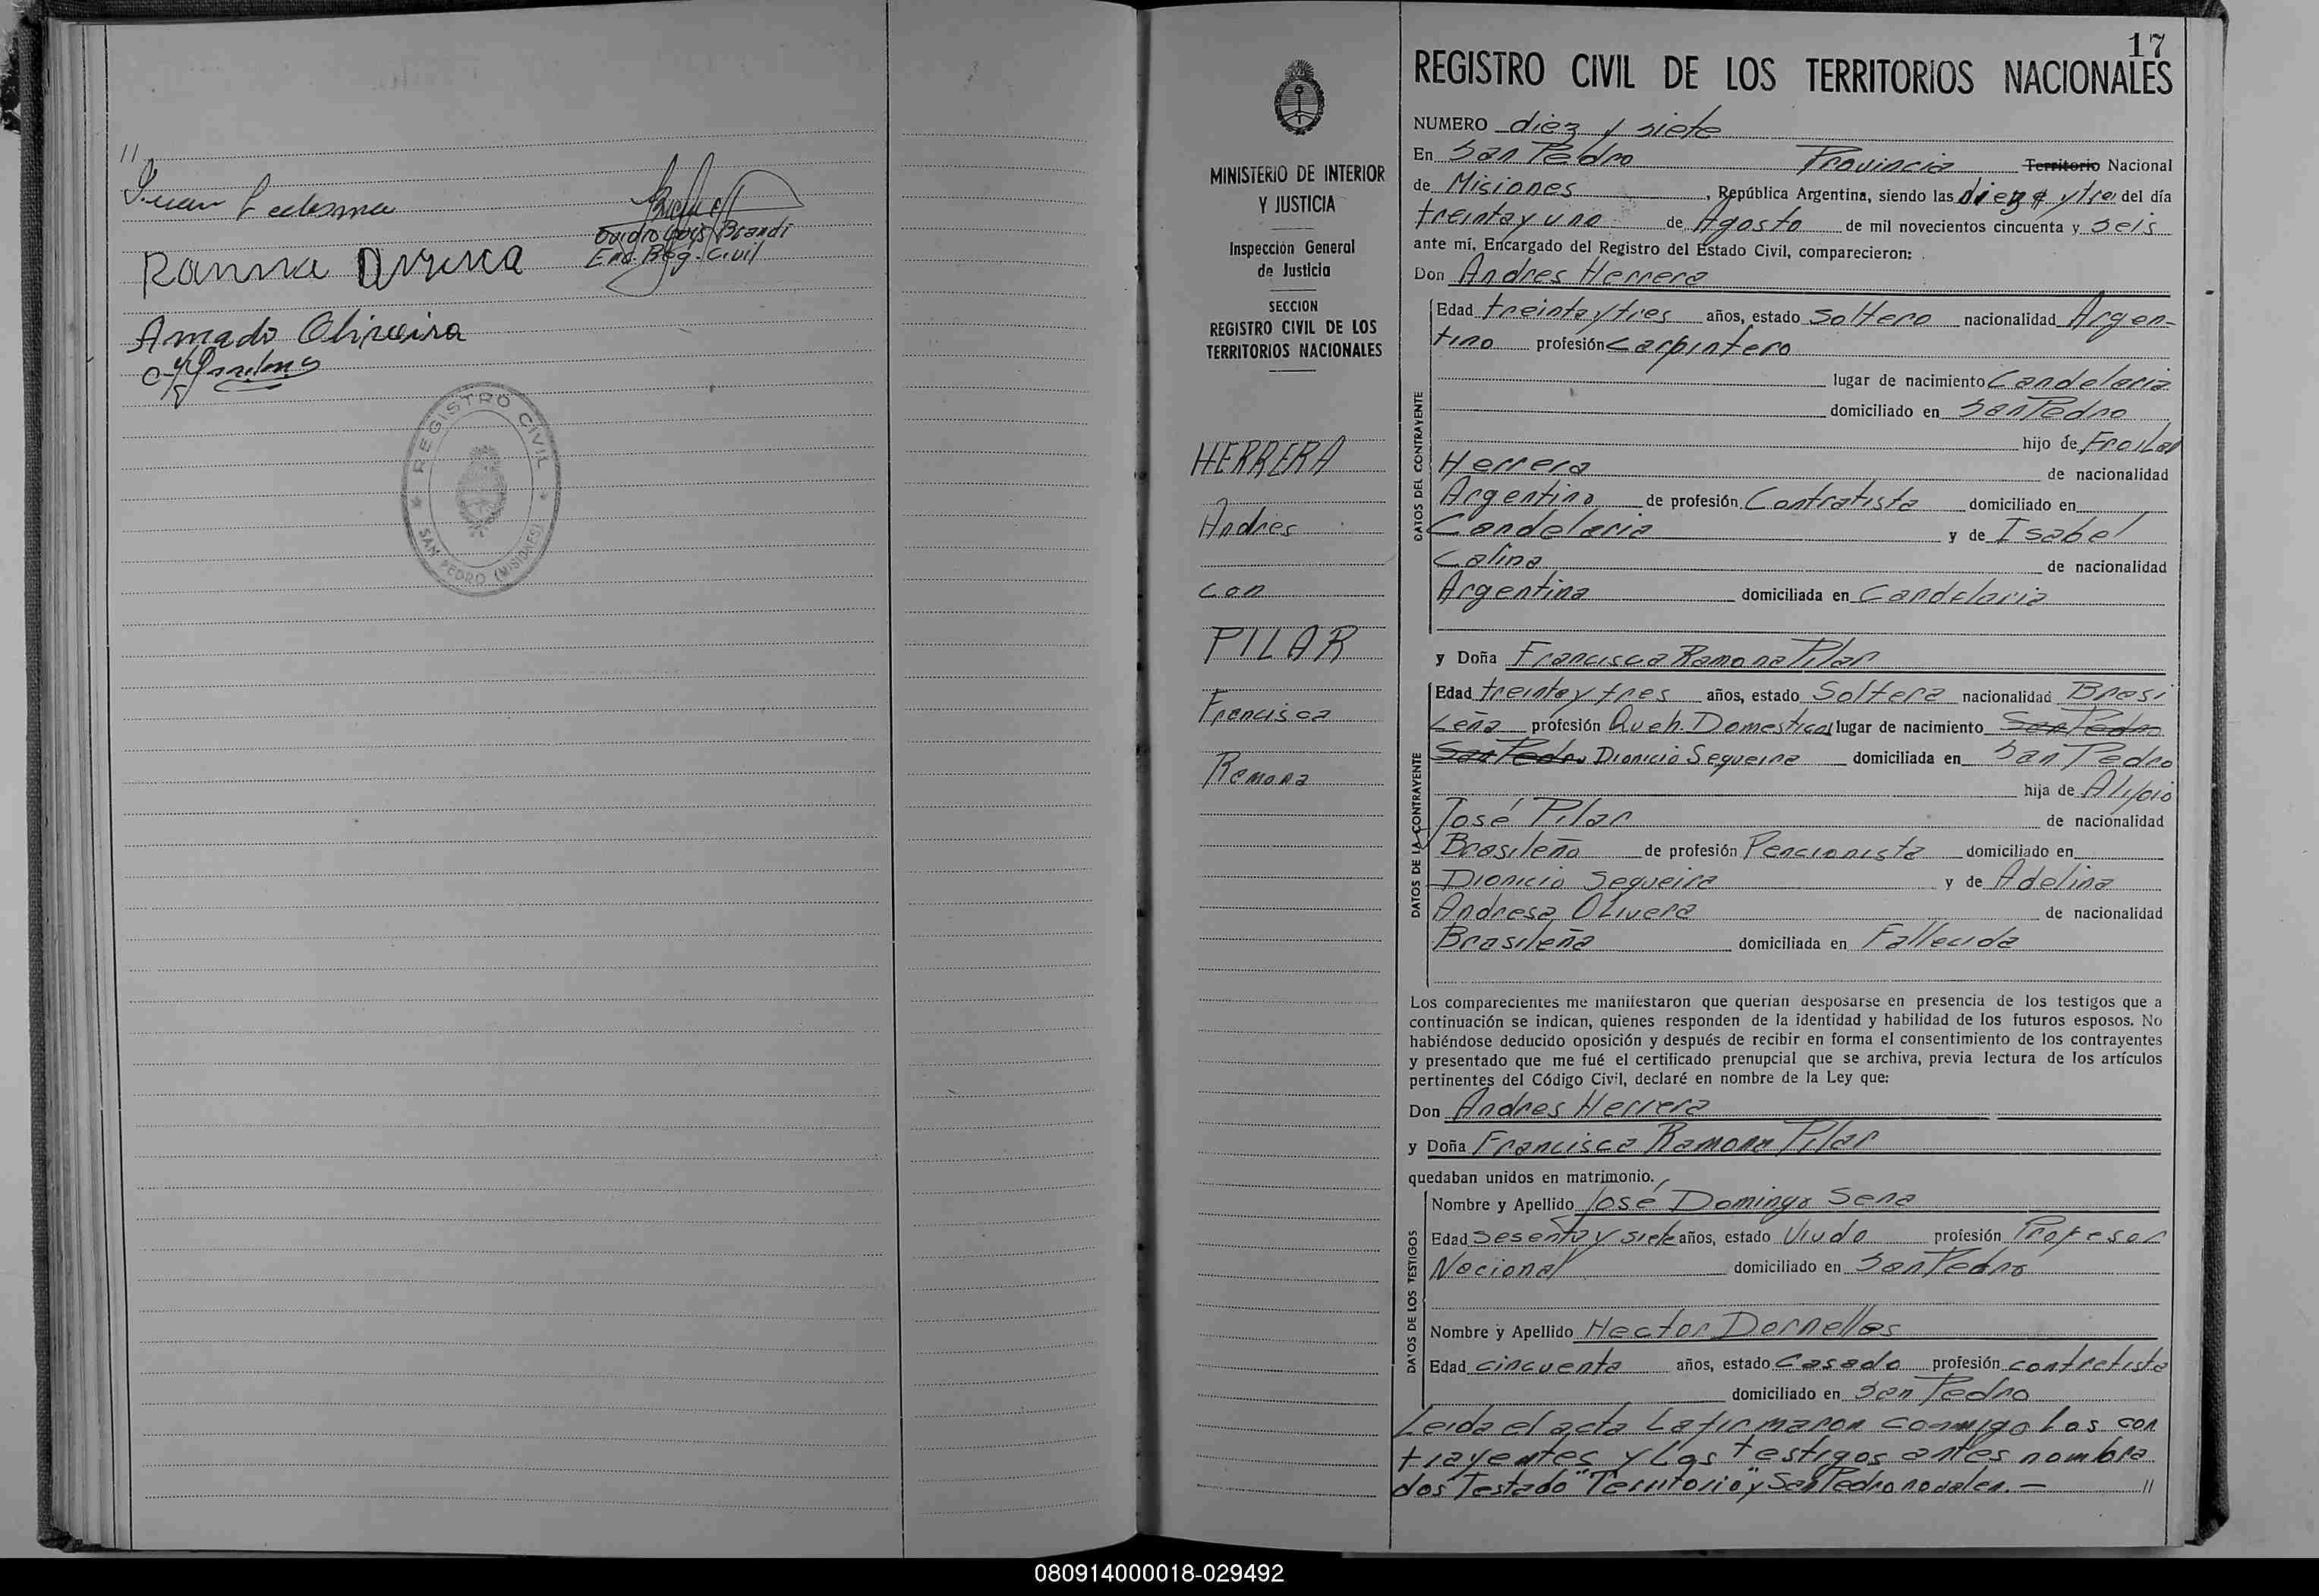 //
Juan Ledesma
Ovidio Luis Brandi
Enc. Reg. Civil
Amado Oliveira
REGISTRO CIVIL
SAN PEDRO (MISIONES)
MINISTERIO DE INTERIOR
Y JUSTICIA
Inspección General
de Justicia
SECCION
REGISTRO CIVIL DE LOS
TERRITORIOS NACIONALES
HERRERA
Andres
con
PILAR
Francisca
Ramona
17
REGISTRO CIVIL DE LOS TERRITORIOS NACIONALES
NUMERO diez y siete
En San Pedro Provincia Territorio Nacional
de Misiones, República Argentina, siendo las diez y tres del día
treinta y uno de Agosto de mil novecientos cincuenta y seis
ante mí, Encargado del Registro del Estado Civil, comparecieron:
Don Andres Herrera
DATOS DEL CONTRAYENTE
Edad treinta y tres años, estado soltero nacionalidad Argen-
tino profesión carpintero
lugar de nacimiento Candelaria
domiciliado en San Pedro
hijo de Froilan
Herrera de nacionalidad
Argentino de profesión Contratista domiciliado en
Candelaria y de Isabel
Calina de nacionalidad
Argentina domiciliada en Candelaria
y Doña Francisca Ramona Pilar
DATOS DE LA CONTRAYENTE
Edad treinta y tres años, estado Soltera nacionalidad Brasi
Leña profesión Queh. Domesticos lugar de nacimiento San Pedro
San Pedro Dionicio Sequeira domiciliada en San Pedro
hija de Alipio
José Pilar de nacionalidad
Brasileño de profesión Pencionista domiciliado en
Dionicio Sequeira y de Adelina
Andresa Olivera de nacionalidad
Brasileña domiciliada en Fallecida
Los comparecientes me manifestaron que querían desposarse en presencia de los testigos que a
continuación se indican, quienes responden de la identidad y habilidad de los futuros esposos. No
habiéndose deducido oposición y después de recibir en forma el consentimiento de los contrayentes
y presentado que me fué el certificado prenupcial que se archiva, previa lectura de los artículos
pertinentes del Código Civil, declaré en nombre de la Ley que:
Don Andres Herrera
y Doña Francisca Ramona Pilar
quedaban unidos en matrimonio.
DATOS DE LOS TESTIGOS
Nombre y Apellido José Domingo Sena
Edad Sesenta y siete años, estado Viudo profesión Profesor
Nacional domiciliado en San Pedro
Nombre y Apellido Hector Dornelles
Edad cincuenta años, estado Casado profesión contratista
domiciliado en San Pedro
Leida el acta La firmaron conmigo Los con
trayentes y Los testigos antes nombra
dos Testado "Territorio" y San Pedro no valen. — //
080914000018-029492